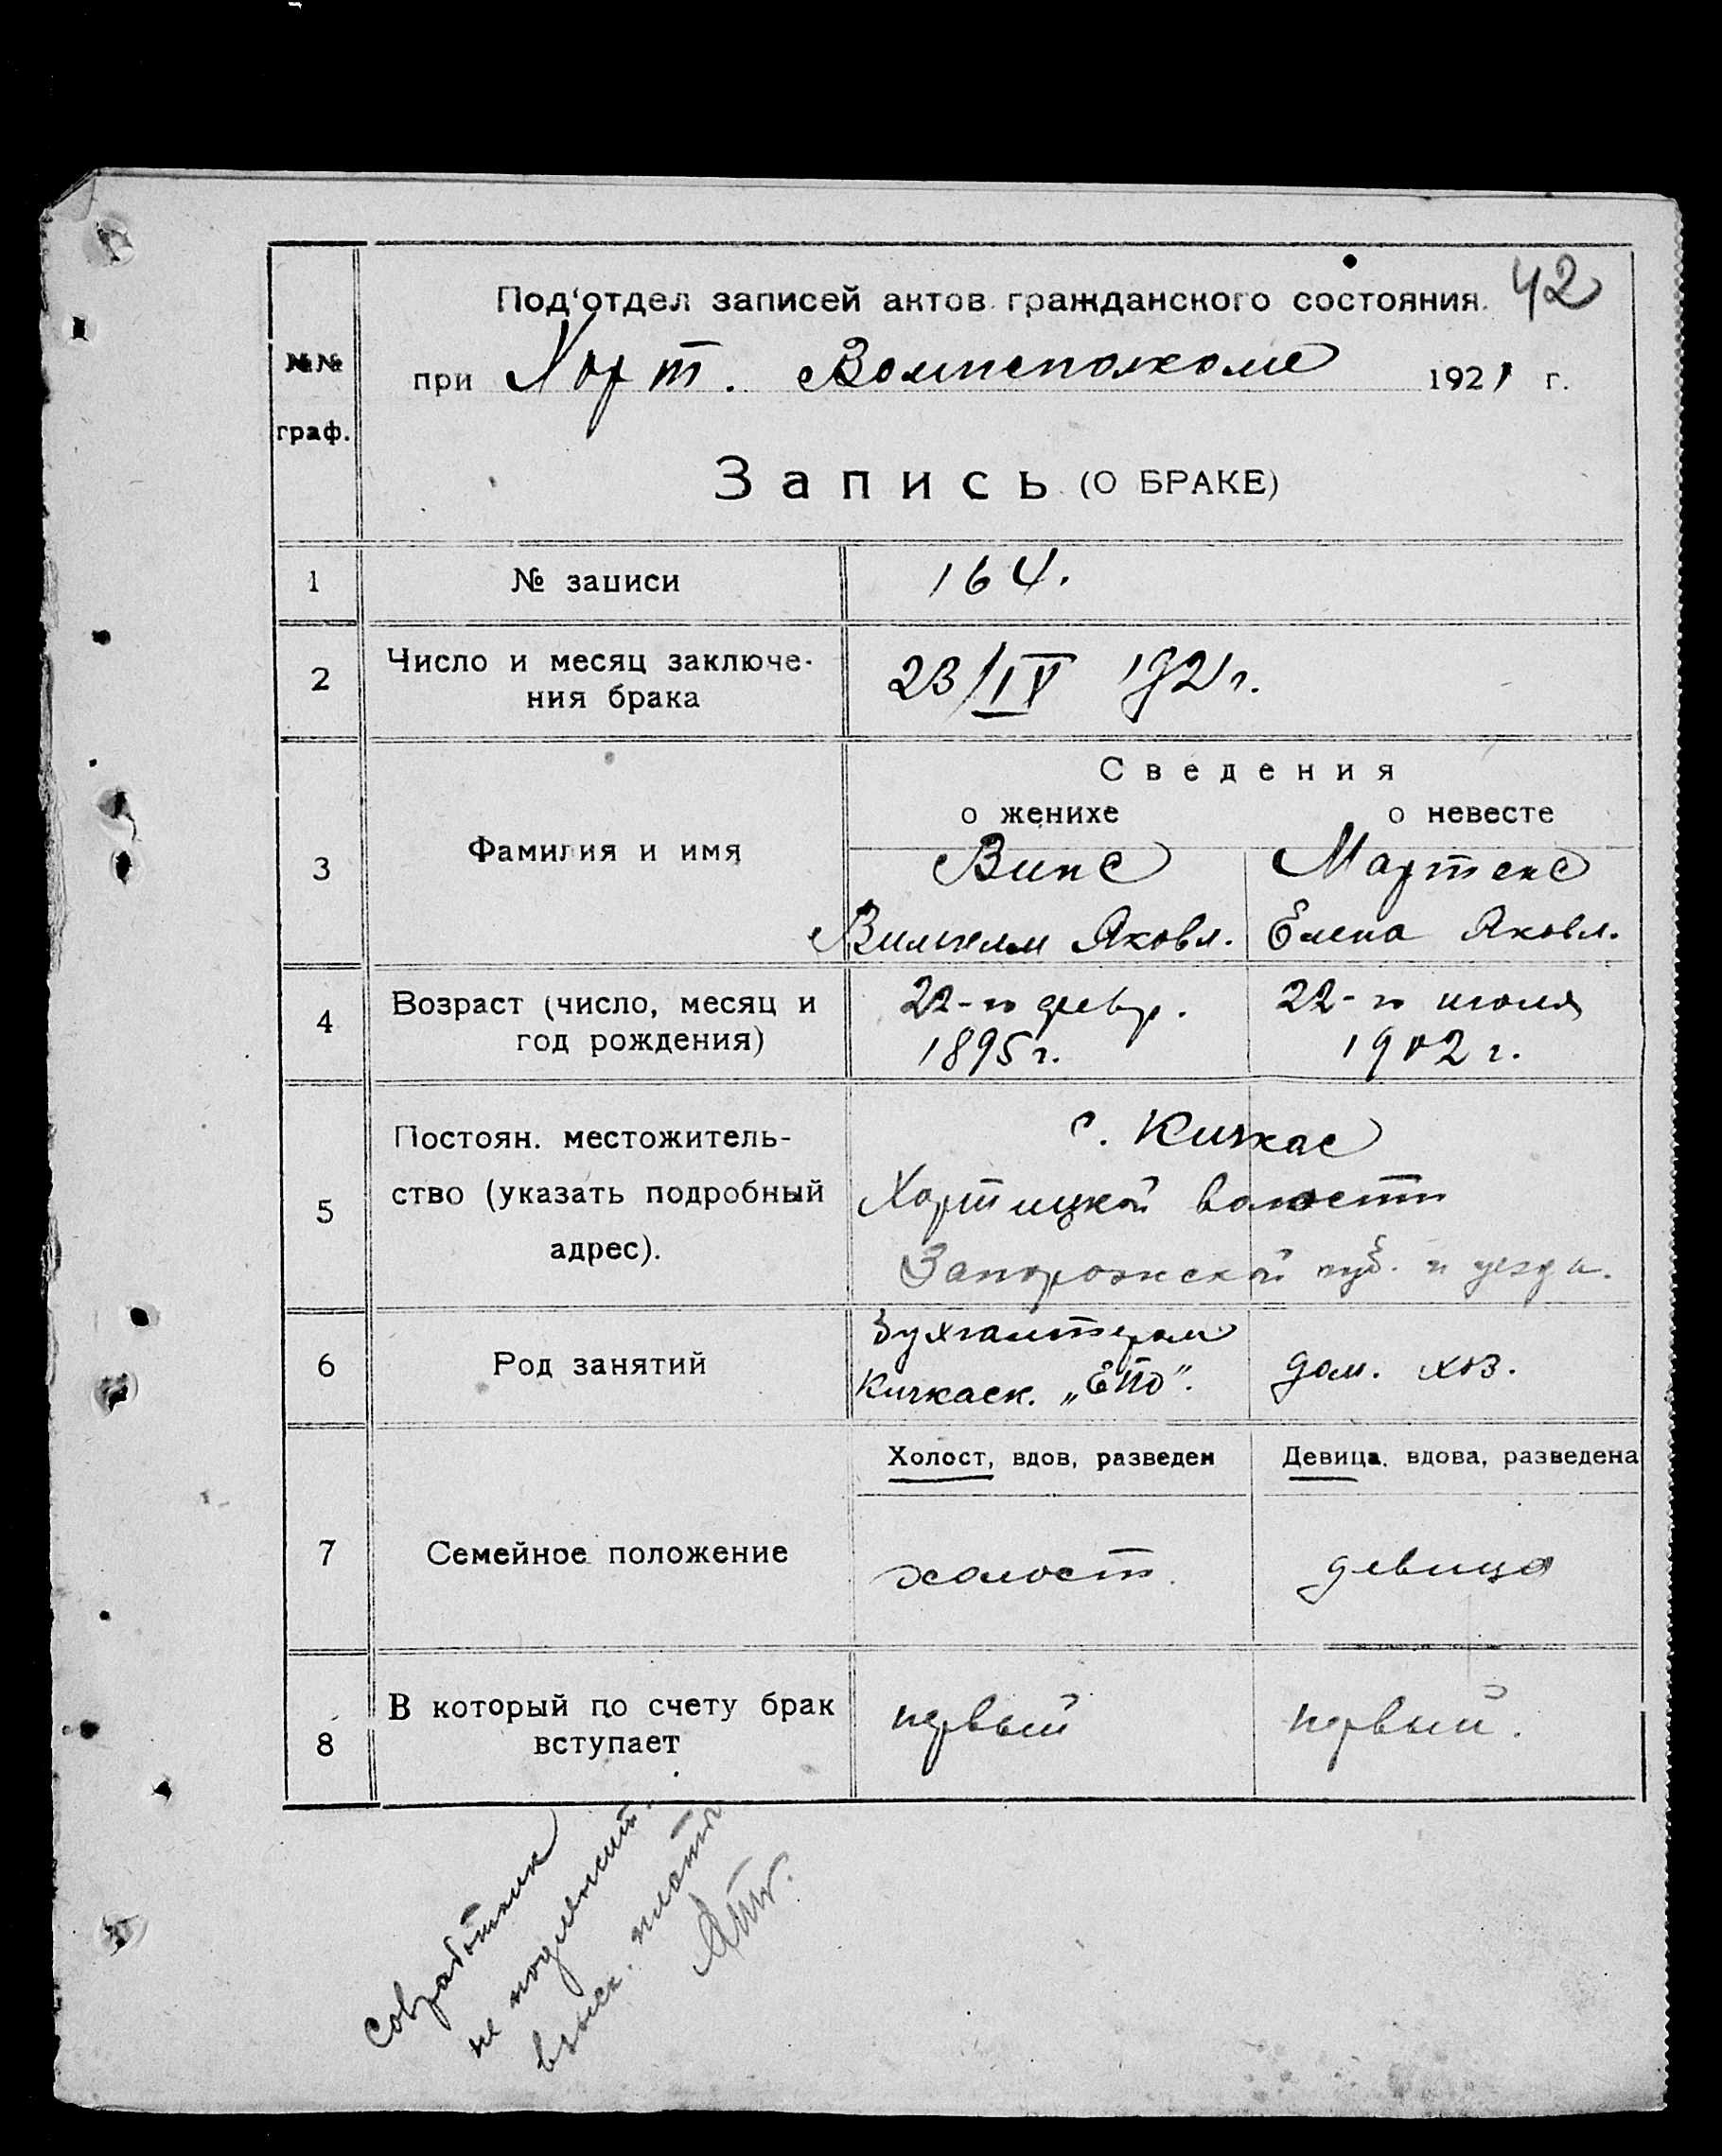 42
№№
граф.
Под‘отдел записей актов гражданского состояния.
при Хорт. Волисполкоме 1921 г.
Запись (О БРАКЕ)
1 № записи 164.
2 Число и месяц заключе-
ния брака
23/IV 1921 г.
Сведения
о женихе о невесте
3 Фамилия и имя
Винс Мартенс
Вильгельм Яковл. Елена Яковл.
4 Возраст (число, месяц и
год рождения)
22-го февр. 22-го июля
1895 г. 1902 г.
5 Постоян. местожитель-
ство (указать подробный
адрес).
с. Кичкас
Хортицкой волости
Запорожской губ. и уезда.
6 Род занятий
Бухгалтером
Кичкаск. „ЕПО“. дом. хоз.
Холост, вдов, разведен Девица, вдова, разведена
7 Семейное положение
холост. девица
8 В который по счету брак
вступает
первый первый.
Совработник
не подлежит
взыск. платы